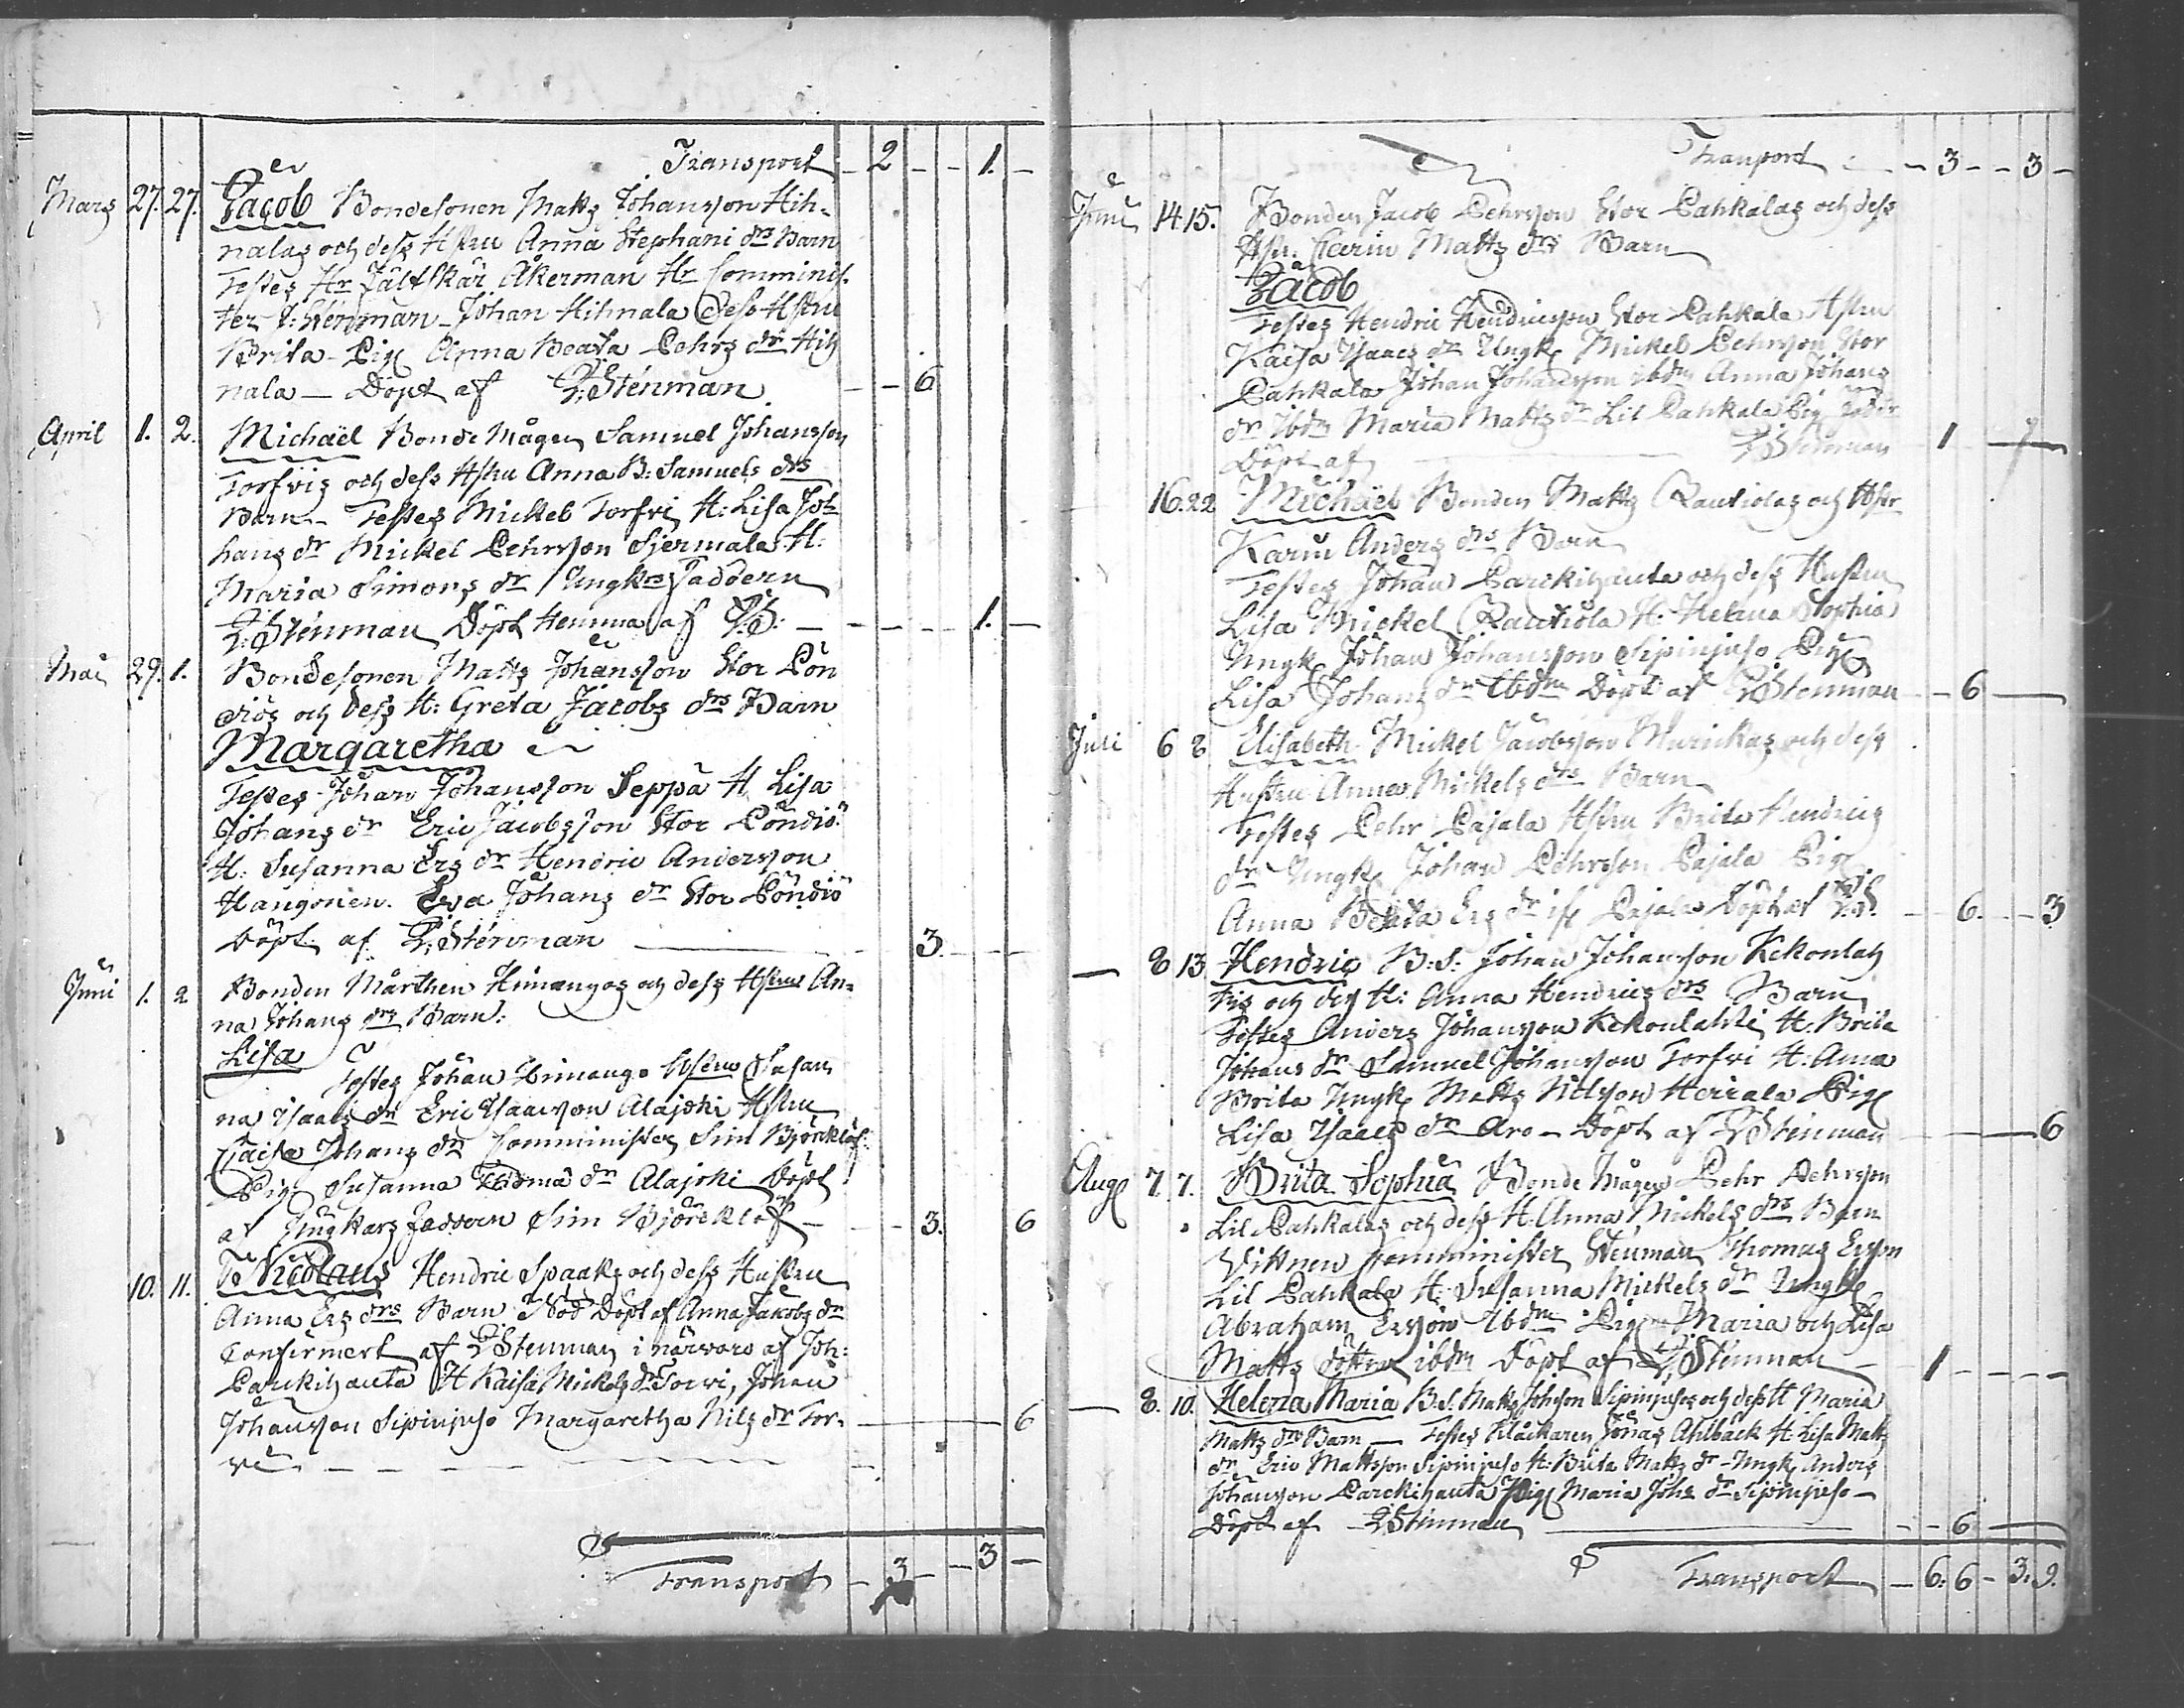 Transport - 2 - - 1. -
Mars 27. 27. Jacob Bondesonen Matts Johansson Hih-
nalas och dess Hstru Anna Stephani drs Barn
Testes Hr Fältskär Åkerman Hr Comminis-
ter Z: Stenman Johan Hihnala Dess Hstru
Brita - Pig Anna Beata Pehrs dr Hih
nala - Döpt af Z: Stenman. - - 6
April 1. 2. Michaël Bonde Mågen Samuel Johansson
Torfvis och dess Hstru Anna B: Samuels drs
Barn - Testes Mickel Torfvi H: Lisa Jo-
hans dr Mickel Pehrsson Sjermala H:
Maria Simons dr Ungkrs Faddern
Z: Stenman Döpt hemma af Z:S: - - - - 1. -
Mai 29. 1. Bondesonen Matts Johansson Stor Pön
diös och dess H: Greta Jacobs drs Barn
Margaretha
Testes Johan Johansson Seppä H Lisa
Johans dr Eric Jacobsson Stor Pöndiö
H: Susanna Ers dr Hendric Andersson
Haugonen. Eva Johans dr Stor Pöndiö
Döpt af Z: Stenman - 3. - -
Juni 1. 2 Bonden Mårthen Himangos och dess Hstru An-
na Johans drs Barn:
Lisa
Testes Johan Himango Hstru Susan
na Isaacs dr Eric Isaacsson Alajoki Hstru
Caisa Johans dr Comminister Sim Björklöf
Pig Susanna dr Alajoki Döpt
af Ungkars faddern Sim Björcklöf - - - 3. 6
10. 11. Nicolaus Hendric Spaaks och dess Hustru
Anna Ers drs Barn Nöd Döpt af Anna Jakobs dr
Confirmert af Z Stenman i närvaro af Joh:
Parckihauta H Kaisa Mickels dr Torvi, Johan
Johansson Sipinpiso Margaretha Nils dr Tor- 6
vi
Transport - 3 - - 3 -
Tranport - - 3 - - 3 -
Juni 14 15. Bonden Jacob Pehrsson Stor Pahkalas och dess
Hstr. Carin Matts drs Barn
Jacob
Testes Hendric Hendricsson Stor Pahkala Hstru
Kaisa Isaacs dr Ungk Mickel Pehrsson Stor
Pahkala Johan Johansson ibdm Anna Johans
dr Ibdm Maria Matts dr Lil Pahkala Pig
Döpt af Z Stenman 1
16. 22 Michaël Bonden Matts Rautiolas och Hstr
Karin Anders drs Barn
Testes Johan Parckihauta och dess Hustru
Lisa Mickel Rautiola H: Helena Sophia
Ungk Johan Johansson Sipinpiso Pig
Lisa Johans dr Ibdm Döpt af Z Stenman - - 6
Juli 6 8 Elisabeth Mickel Jacobsson Murickas och dess
Hustru Anna Mickels drs Barn
Testes Pehr Pajala Hstru Brita Hendrics
dr Ungk Johan Pehrsson Pajala Pig
Anna Beata Ers dr Pajala Döpt af Z:S: - 6. - - 3
- 8 13 Hendric B: S: Johan Johansson Kekonlah
tis och dess H: Anna Hendrics drs Barn
Testes Anders Johansson Kekonlahti H: Brita
Johans dr Samuel Johansson Torfvi H: Anna
Brita Ungk Matts Nilsson Herrala Pig
Lisa Isaacs dr Aro - Döpt af Z Stenman 6
Aug 7. 7. Brita Sophia Bonde Mågen Pehr Pehrsson
Lil Pahkalas och dess H: Anna Mickels drs Barn
Vittnen Comminister Stenman Thomas Ersson
Lil Pahkala H: Susanna Mickels dr Ungk
Abraham Ersson Ibdm Pigor Maria och Lisa
Matts döttrar ibdm Döpt af Z: Stenman - 1 - - - -
- 8. 10. Helena Maria B: S: Matts Johsson Sipinpisos och dess H Maria
Matts drs Barn - Testes Klåckaren Jonas Ahlbäck H: Lisa Matts
dr Eric Mattsson Sipinpiso H: Brita Matts dr - Ungk Anders
Johansson Parckihauta Pig Maria Johs dr Sipinpiso -
Döpt af Z Stenman - - 6
Transport - 6. 6 - 3. 9.